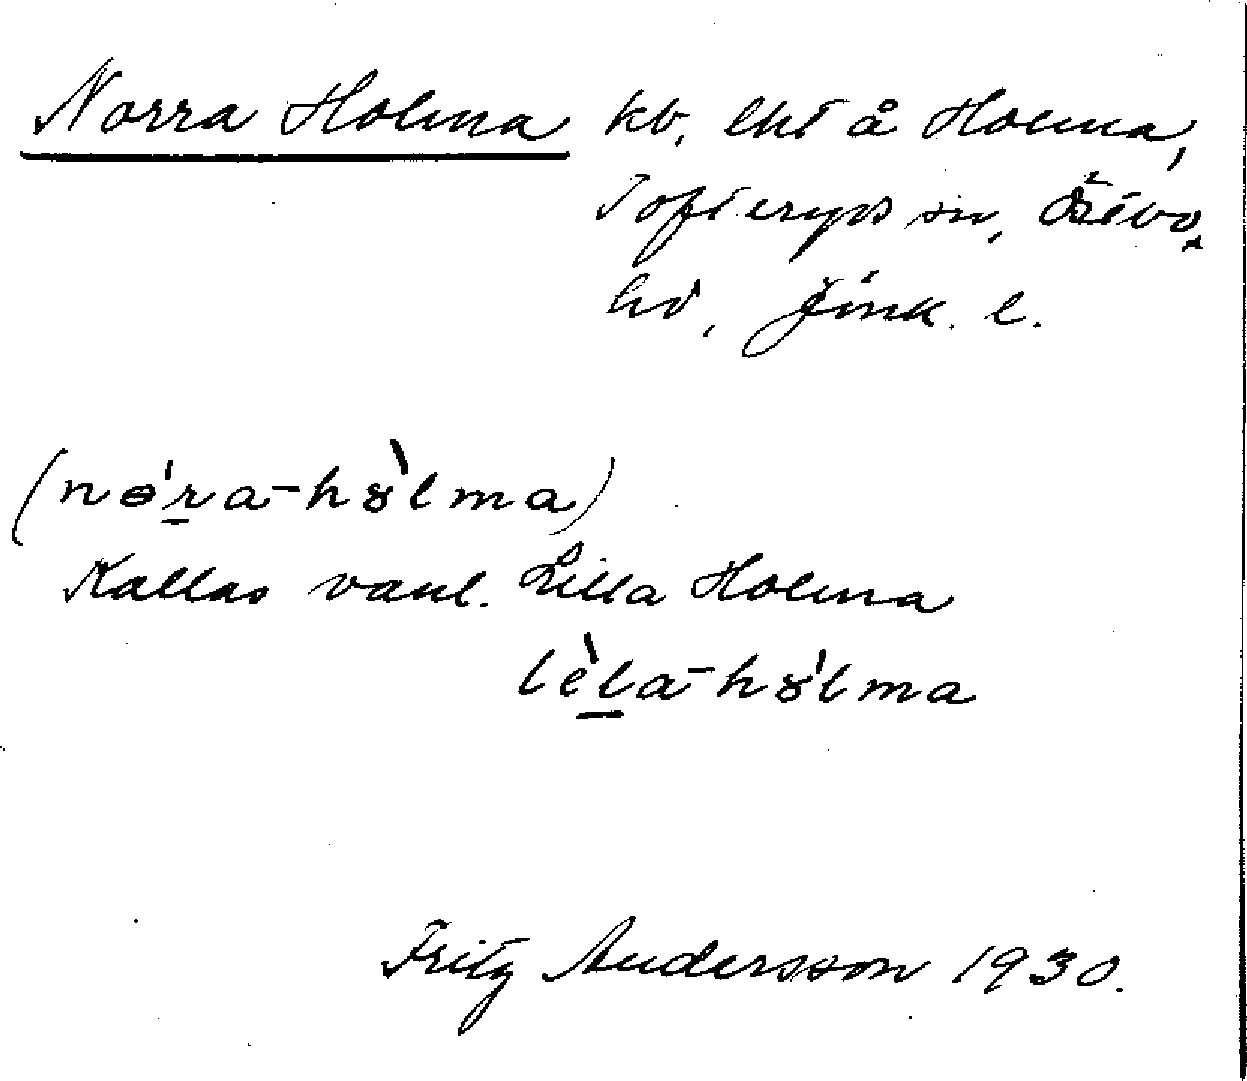 Norra Holma kb, lht å Holma,
Tofteryds sn, Östbo
hd, Jönk. l.
(nɵ́r̲a-hɤ̀lma)
Kallas vanl. Lilla Holma
lèl̲a-hɤ́lma
Fritz Andersson 1930.